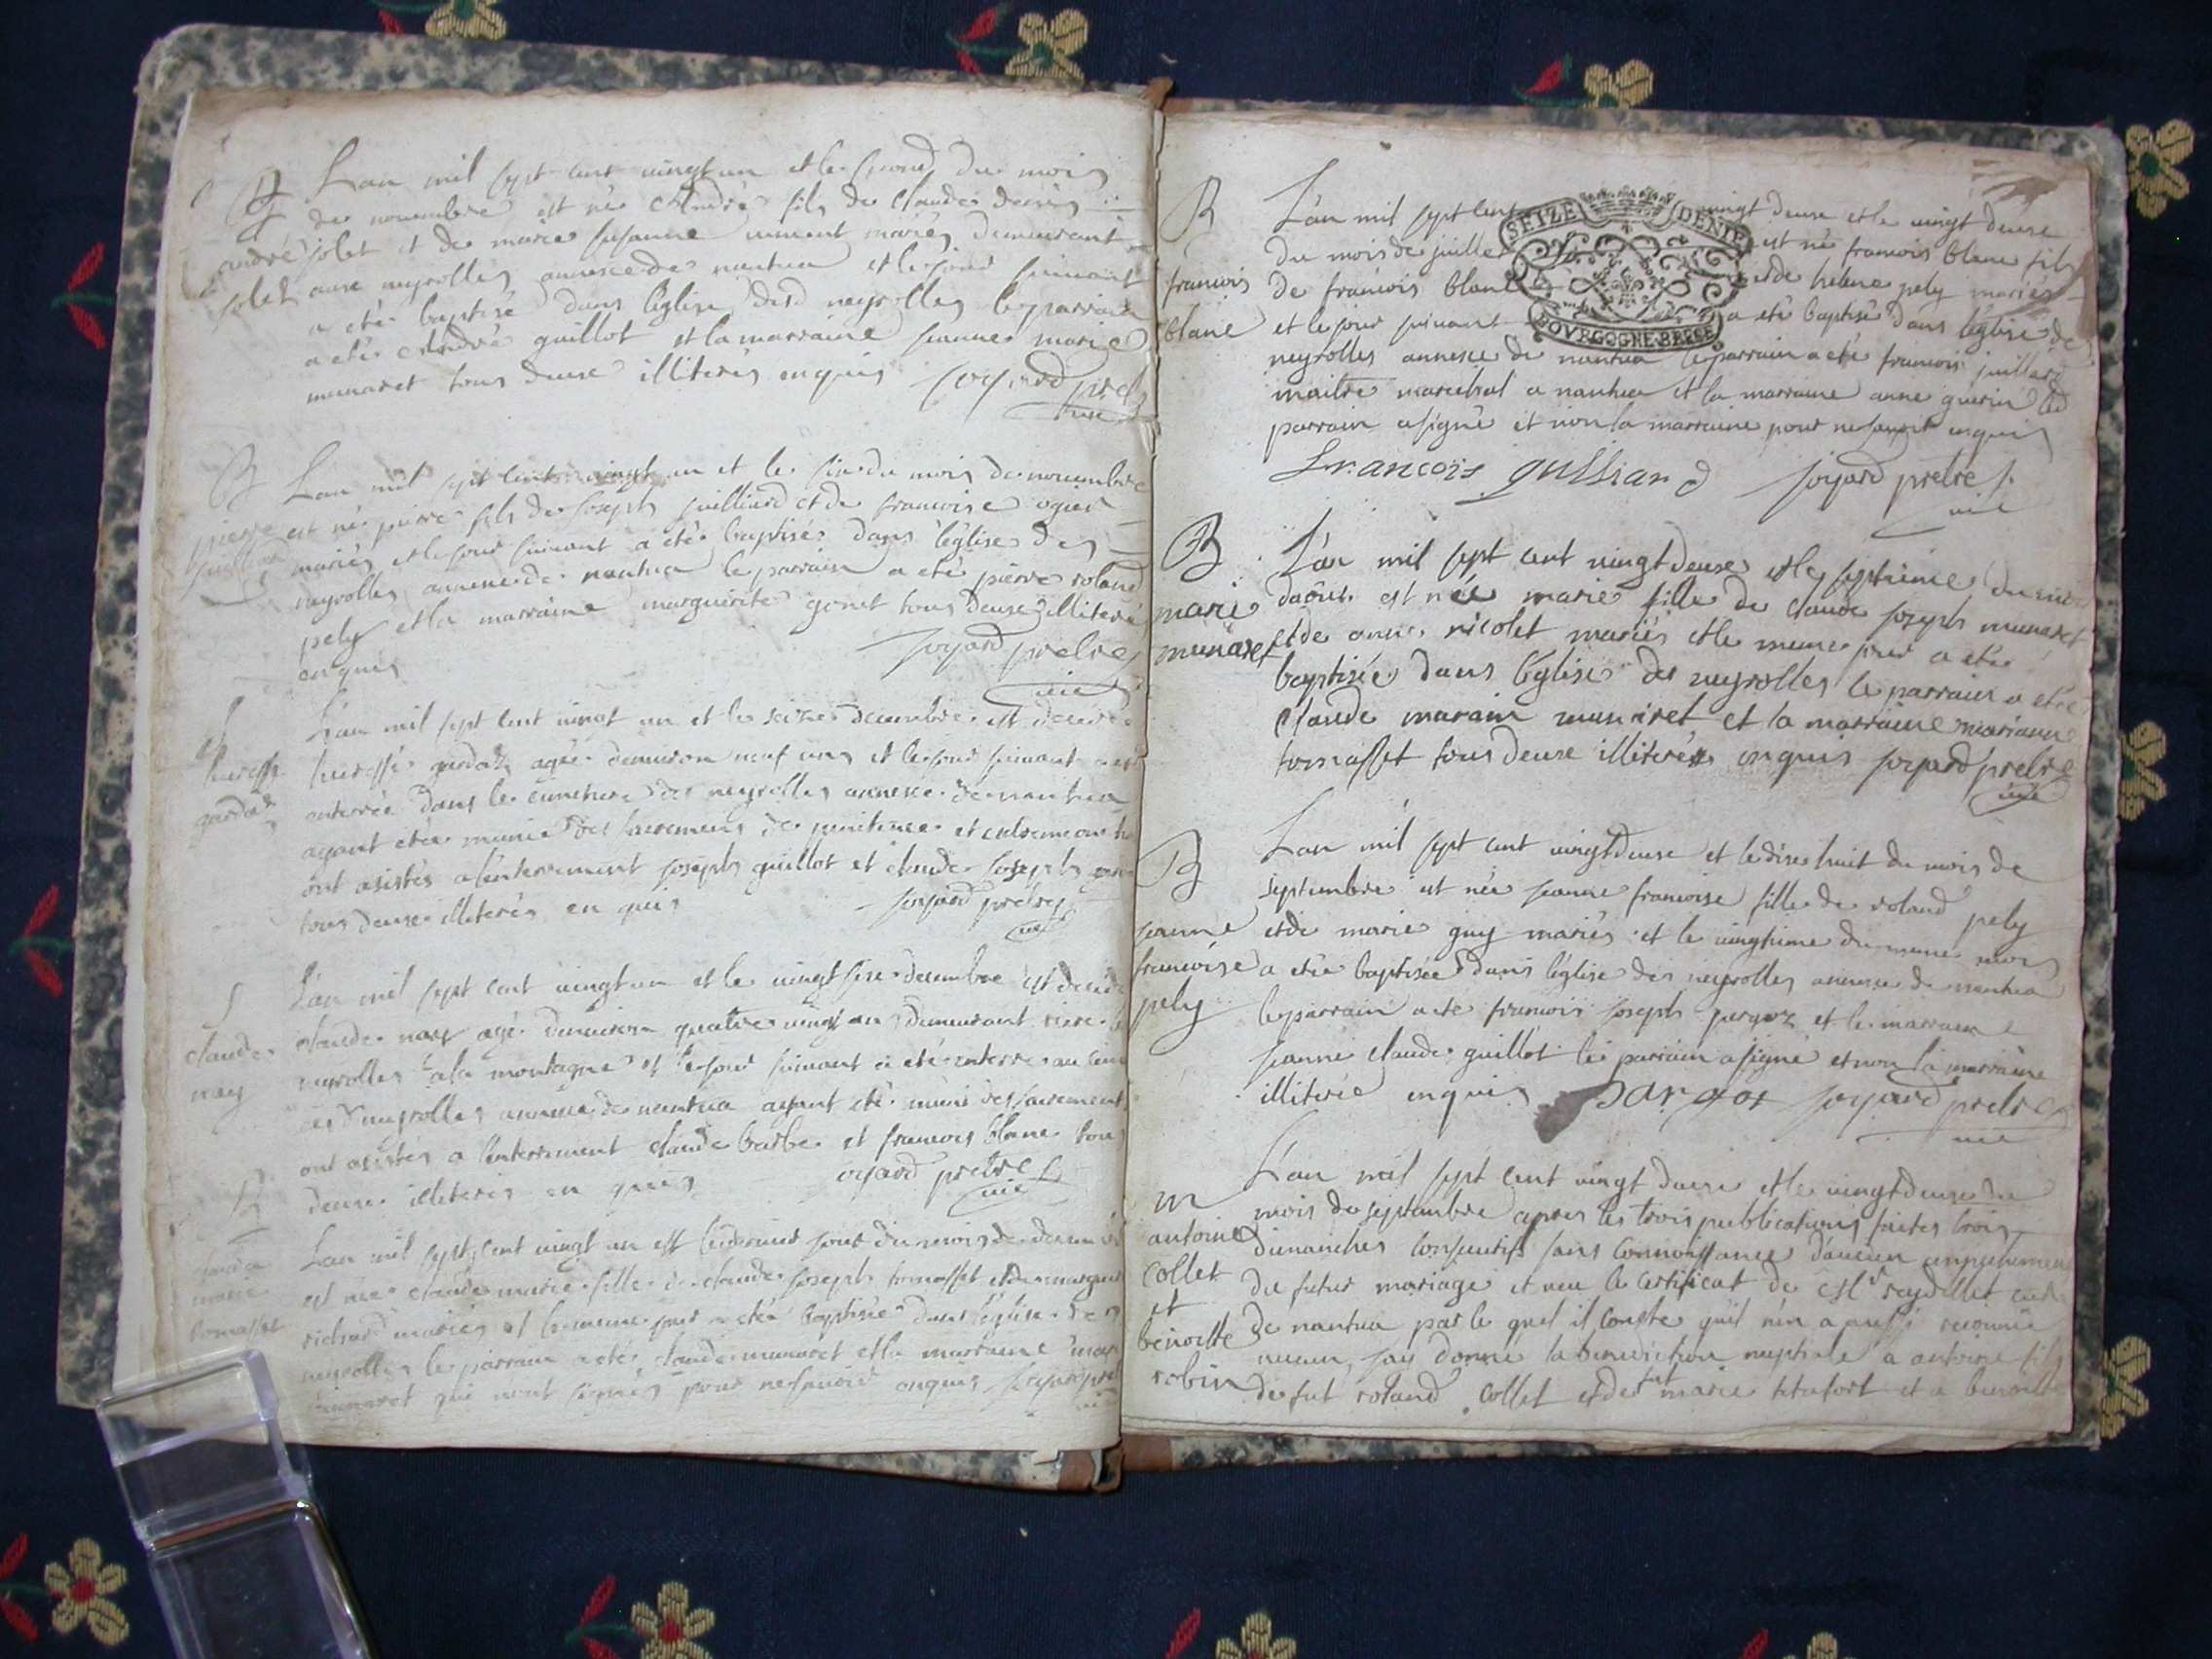 B
L'an mil sept cent vingt un et le second du mois
de novembre est né André fils de Claude denis
andré jolet et de marie susanne mariés demeurant
jolet aux neyrolles annexe de nantua et le jour suivant
a eté baptisé dans l'église desd neyrolles le parrain
a eté André guillot et la marraine jeanne marie
munaret tous deuse illiterés enquis joyard pretre
vic
B
L'an mil sept cent vingt un et le six du mois de novembre
pierre est né pierre fils de joseph juilliard et de francoise ogier
juilliard mariés et le jour suivant a eté baptisé dans l'église des
neyrolles annexe de nantua le parrain a eté pierre roland
pely et la marraine marguerite gonet tous deuse illiterés
enquis joyard pretre
vic
L'an mil sept cent vingt un et le seize decembre est decedée
gardaz agée denviron neuf ans et le jour suivant a eté
gardaz enterrée dans le cimetiere des neyrolles annexe de nantua
ayant etée munie des sacremens de penitence et extreme
ont asistés a l'enterrement joseph guillot et claude joseph
tous deuse illiterés enquis joyard pretre
vic
S
L'an mil sept cent vingt un et le vingt sixe decembre est decedé
claude claude nay agé denviron quatre vingt ans demeurant
nay neyrolles a la montagne et le jour suivant a eté enterré au
des neyrolles annexe de nantua ayant eté muni des sacrement
ont asistés a l'enterrement claude barbe et francois blanc tous
deuse illiterés enquis joyard pretre
vic
B
L'an mil sept cent vingt un est le dernier jour du mois de decembre
claudine
marie est née claudine marie fille de claude joseph tomasset et de
tomasset richard mariés et le meme jour a etée baptisée dans l'église des
neyrolles le parrain a eté claude munaret et la marraine
munaret qui nont signés pour ne savoir enquis joyard
B
L'an mil sept cent vingt deuse et le vingt deuse
SEIZE DENIE
du mois de juillet est né francois blanc fils
francois de francois blanc et de helene pely mariés
blanc et le jour suivant a eté baptisé dans l'église de
BOVRGOGNE-BRESSE
neyrolles annexe de nantua le parrain a eté francois juillard
maitre marechal a nantua et la marraine anne guerin led
parrain a signé et non la marraine pour ne savoir enquis
Francois guilliard joyard pretre
vic
B
L'an mil sept cent vingt deuse et le septieme du mois
marie daôut est née marie fille de claude joseph munaret
munaret et de anne nicolet mariés et le meme jour a etée
baptisée dans l'église des neyrolles le parrain a eté
claude marain munaret et la marraine marianne
tomasset tous deuse illiterés enquis joyard pretre
vic
B
L'an mil sept cent vingt deuse et le dise huit du mois de
septembre est née jeanne francoise fille de roland pely
jeanne et de marie guy mariés et le vingtieme du meme mois
francoise a etée baptisée dans l'église des neyrolles annexe de nantua
pely le parrain a eté francois joseph et la marraine
jeanne claude guillot le parrain a signé et non la marraine
illiterée enquis joyard pretre
vic
m
L'an mil sept cent vingt deuse et le vingt deuse du
mois de septembre apres les trois publications faites trois
antoine dimanches consecutifs sans connoissance d'aucun empechement
collet du futur mariage et veu le certificat de Mr reydellet curé
et
benoitte de nantua par le quel il conste quil n'en a aussi reconnu
robin aucun jay donné la benediction nuptiale a antoine fils
de fut roland collet et de fut marie et a benoitte